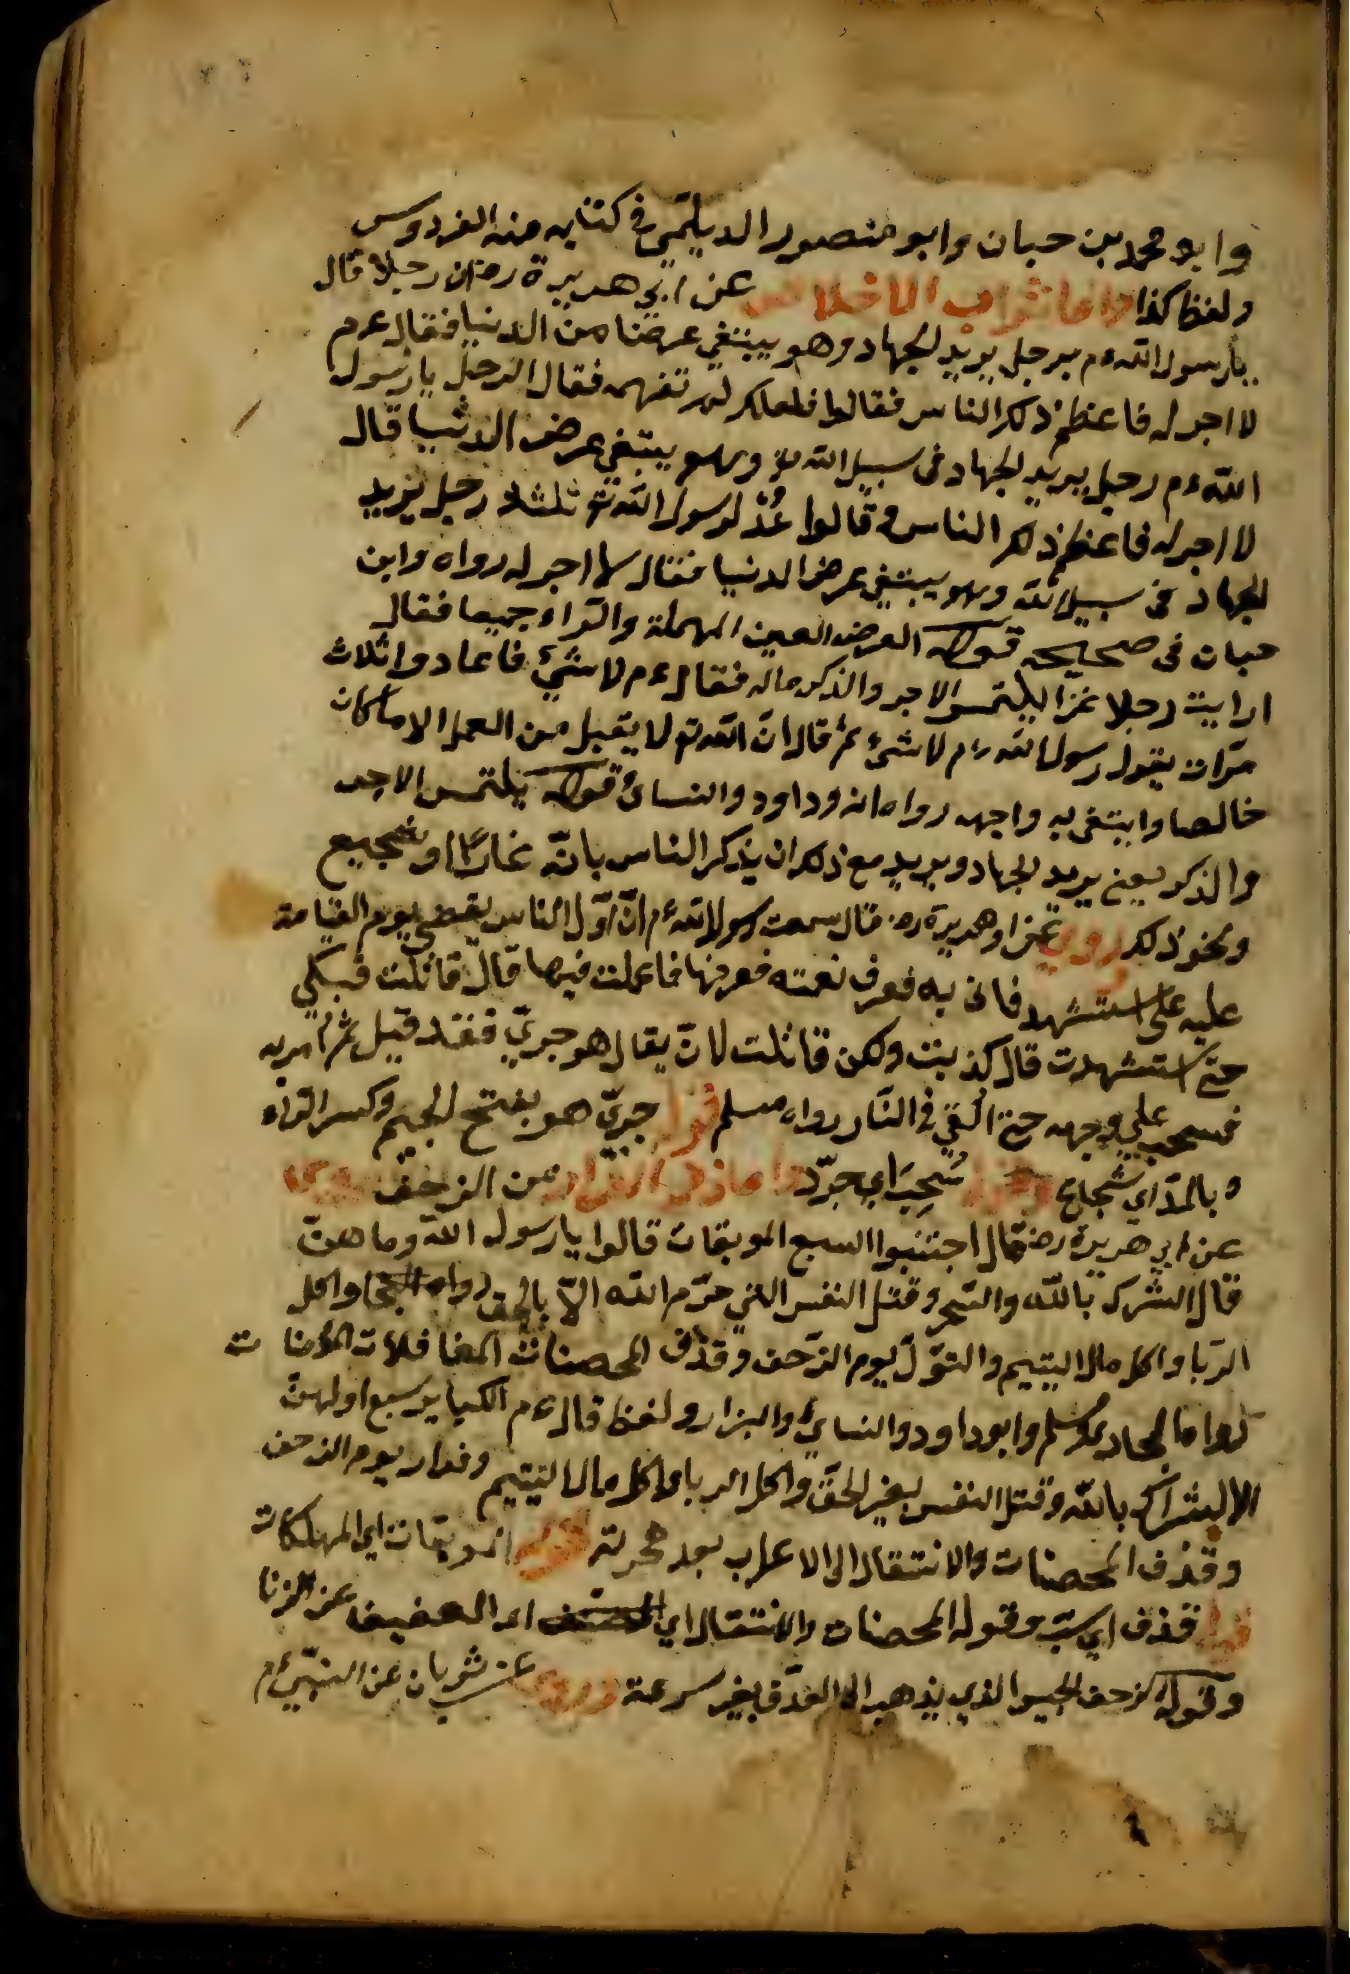 وابو محمد بن حبان وابو منصور الديلمي في كتابه منه الفردوس
ولفظ كذا واما ثواب الاخلاص عن ابي هريرة رضه ان رجلا قال
يارسول الله ءم برجل يريد الجهاد وهو يبتغي عرضا من الدنيا فقال ءم
لا اجر له فاعظم ذلك الناس فقالوا فلعلك لم تفهمه فقال الرجل يارسول
الله ءم رجل يريد الجهاد في سبيل الله وهو يبتغي عرض الدنيا قال
لا اجر له فاعظم ذلك الناس وقالوا عُدْ لرسول الله ثلثا رجل يريد
الجهاد في سبيل الله وهو يبتغي عرض الدنيا فقال لا اجر له رواه وابن
حبان في صحيحه قوله العرض العين المهملة والراء جميعا فقال
ارايت رجلا غزا يلتمس الاجر والذكر ماله فقال ءم لا شئ فاعادوا ثلاث
مرّات يقول رسول الله ءم لا شئ ثم قال انّ الله تع لا يقبل من العمل الا ما كان
خالصا وابتغى به واجهه رواه ابو داود والنسائ قوله يلتمس الاجر
والذكر يعني يريد الجهاد ويريد مع ذلك ان يذكر الناس بانّه غازيا او شجيع
ونحو ذلك روي عن ابو هريرة رضه قال سمعت رسول الله ءم انّ اوّل الناس يقضى يوم القيامة
عليه على استشهد فاتى به فعرف نعمته فعرفها فما عملت فيها قال قاتلت فبكي
حتى استشهدت قال كذبت ولكن قاتلت لانّ يقال هو جريّ فقد قيل ثم امر به
فسحب علي وجهه حتى اُلقي في النّار رواه مسلم قوله جريّ هو بفتح الجيم وكسر الرّاء
وبالمدّ اي شجاع وقوله سُحِبَ اي جرّد واما ذمّ الفرار من الزحف روى
عن ابي هريرة رضه قال اجتنبوا السبع الموبقات قالوا يا رسول الله وما هنّ
قال الشرك بالله والسّحر وقتل النفس التي حرّم الله الاّ بالحق واكل
الرّبا واكل مال اليتيم والتولّ يوم الزّحف وقذف المحصنات الغافلات المؤمنات
رواه البخاري ومسلم وابو داود والنسائ والبزار ولفظ قال ءم الكبائر سبع اولهنّ
الاشراك بالله وقتل النفس بغير الحقّ واكل الربا واكل مال اليتيم وفرار يوم الزحف
وقذف المحصنات والانتقال الى الاعراب بعد هجرته قوله الموبقات اي المهلكات
قوله قذف اي سبّ وقوله المحصنات والانتقال اي العفيف عن الزنا
وقوله زحف الجيش الذي يذهب الى العدّو بغير سرعة وروى عن ثوبان عن النبيّ ءم